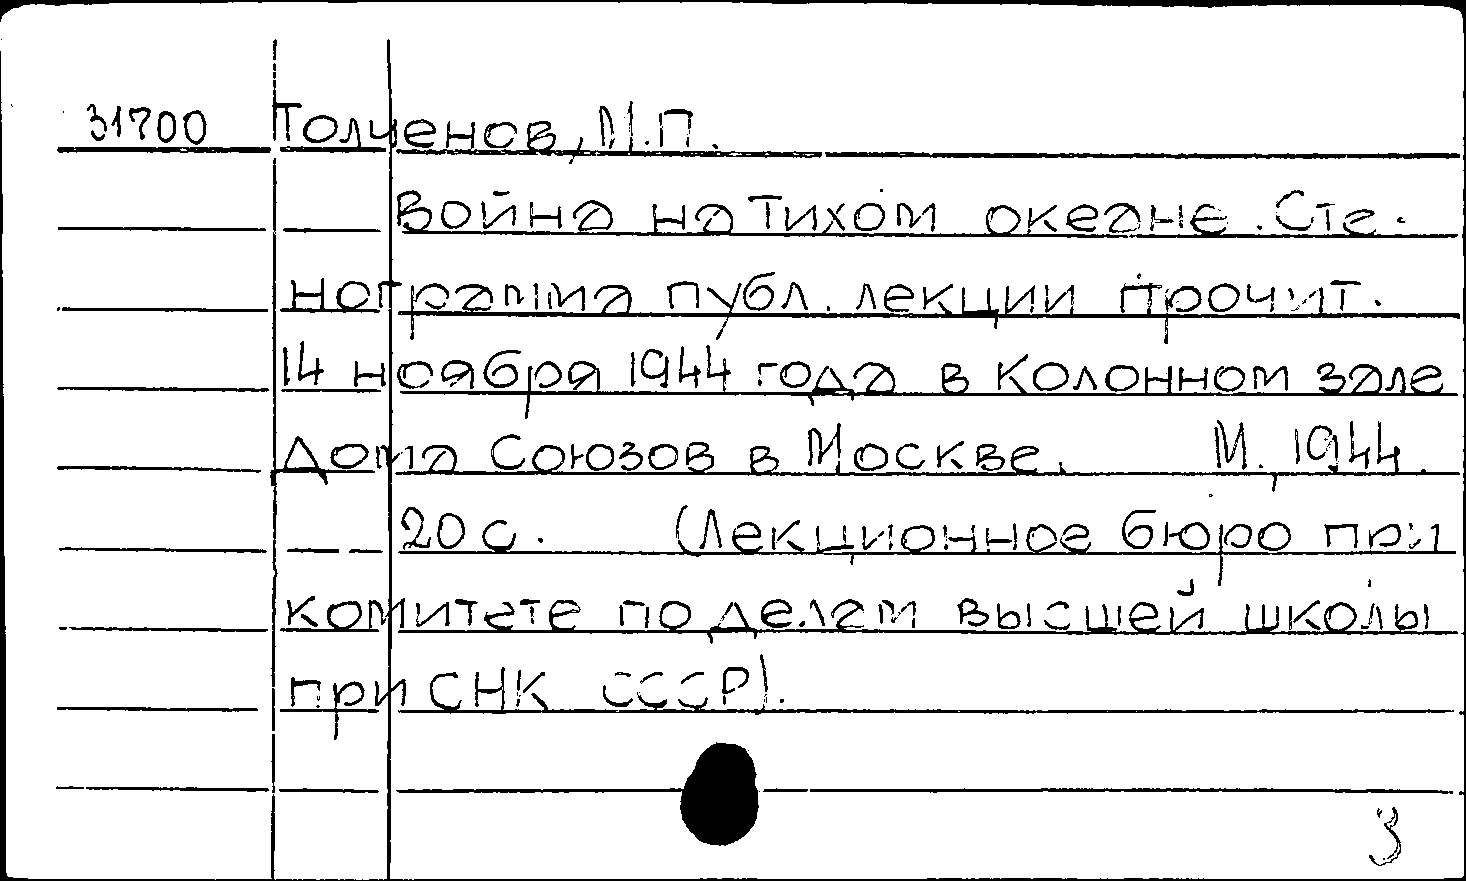 31700 Толченов, М.П.
Война на Тихом океане. Сте-
нограмма публ. лекции прочит.
14 ноября 1944 года в Колонном зале
Дома Союзов в Москве. М., 1944.
20 с. (Лекционное бюро при
комитете по делам высшей школы
при СНК СССР).
3